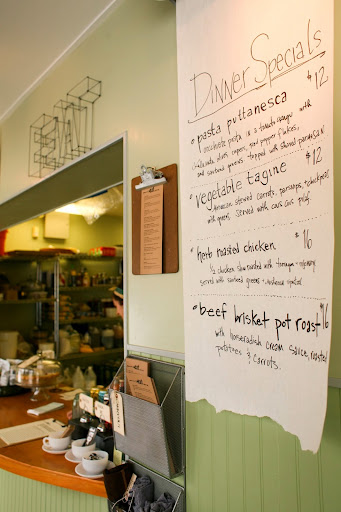 EAT
Dinner Specials
pasta puttanesca $12
orecchiette pasta in a tomato sauce with
olives, capers, red pepper flakes,
and greens topped with shaved parmesan
vegetable tagine $12
Moroccan stewed carrots, parsnips, + chickpeas
with greens, served with cous cous
herb roasted chicken $16
1/2 chicken slow roasted with tarragon + rosemary
served with sauteed greens +
beef brisket pot roast $16
with horseradish cream sauce, roasted
potatoes & carrots.